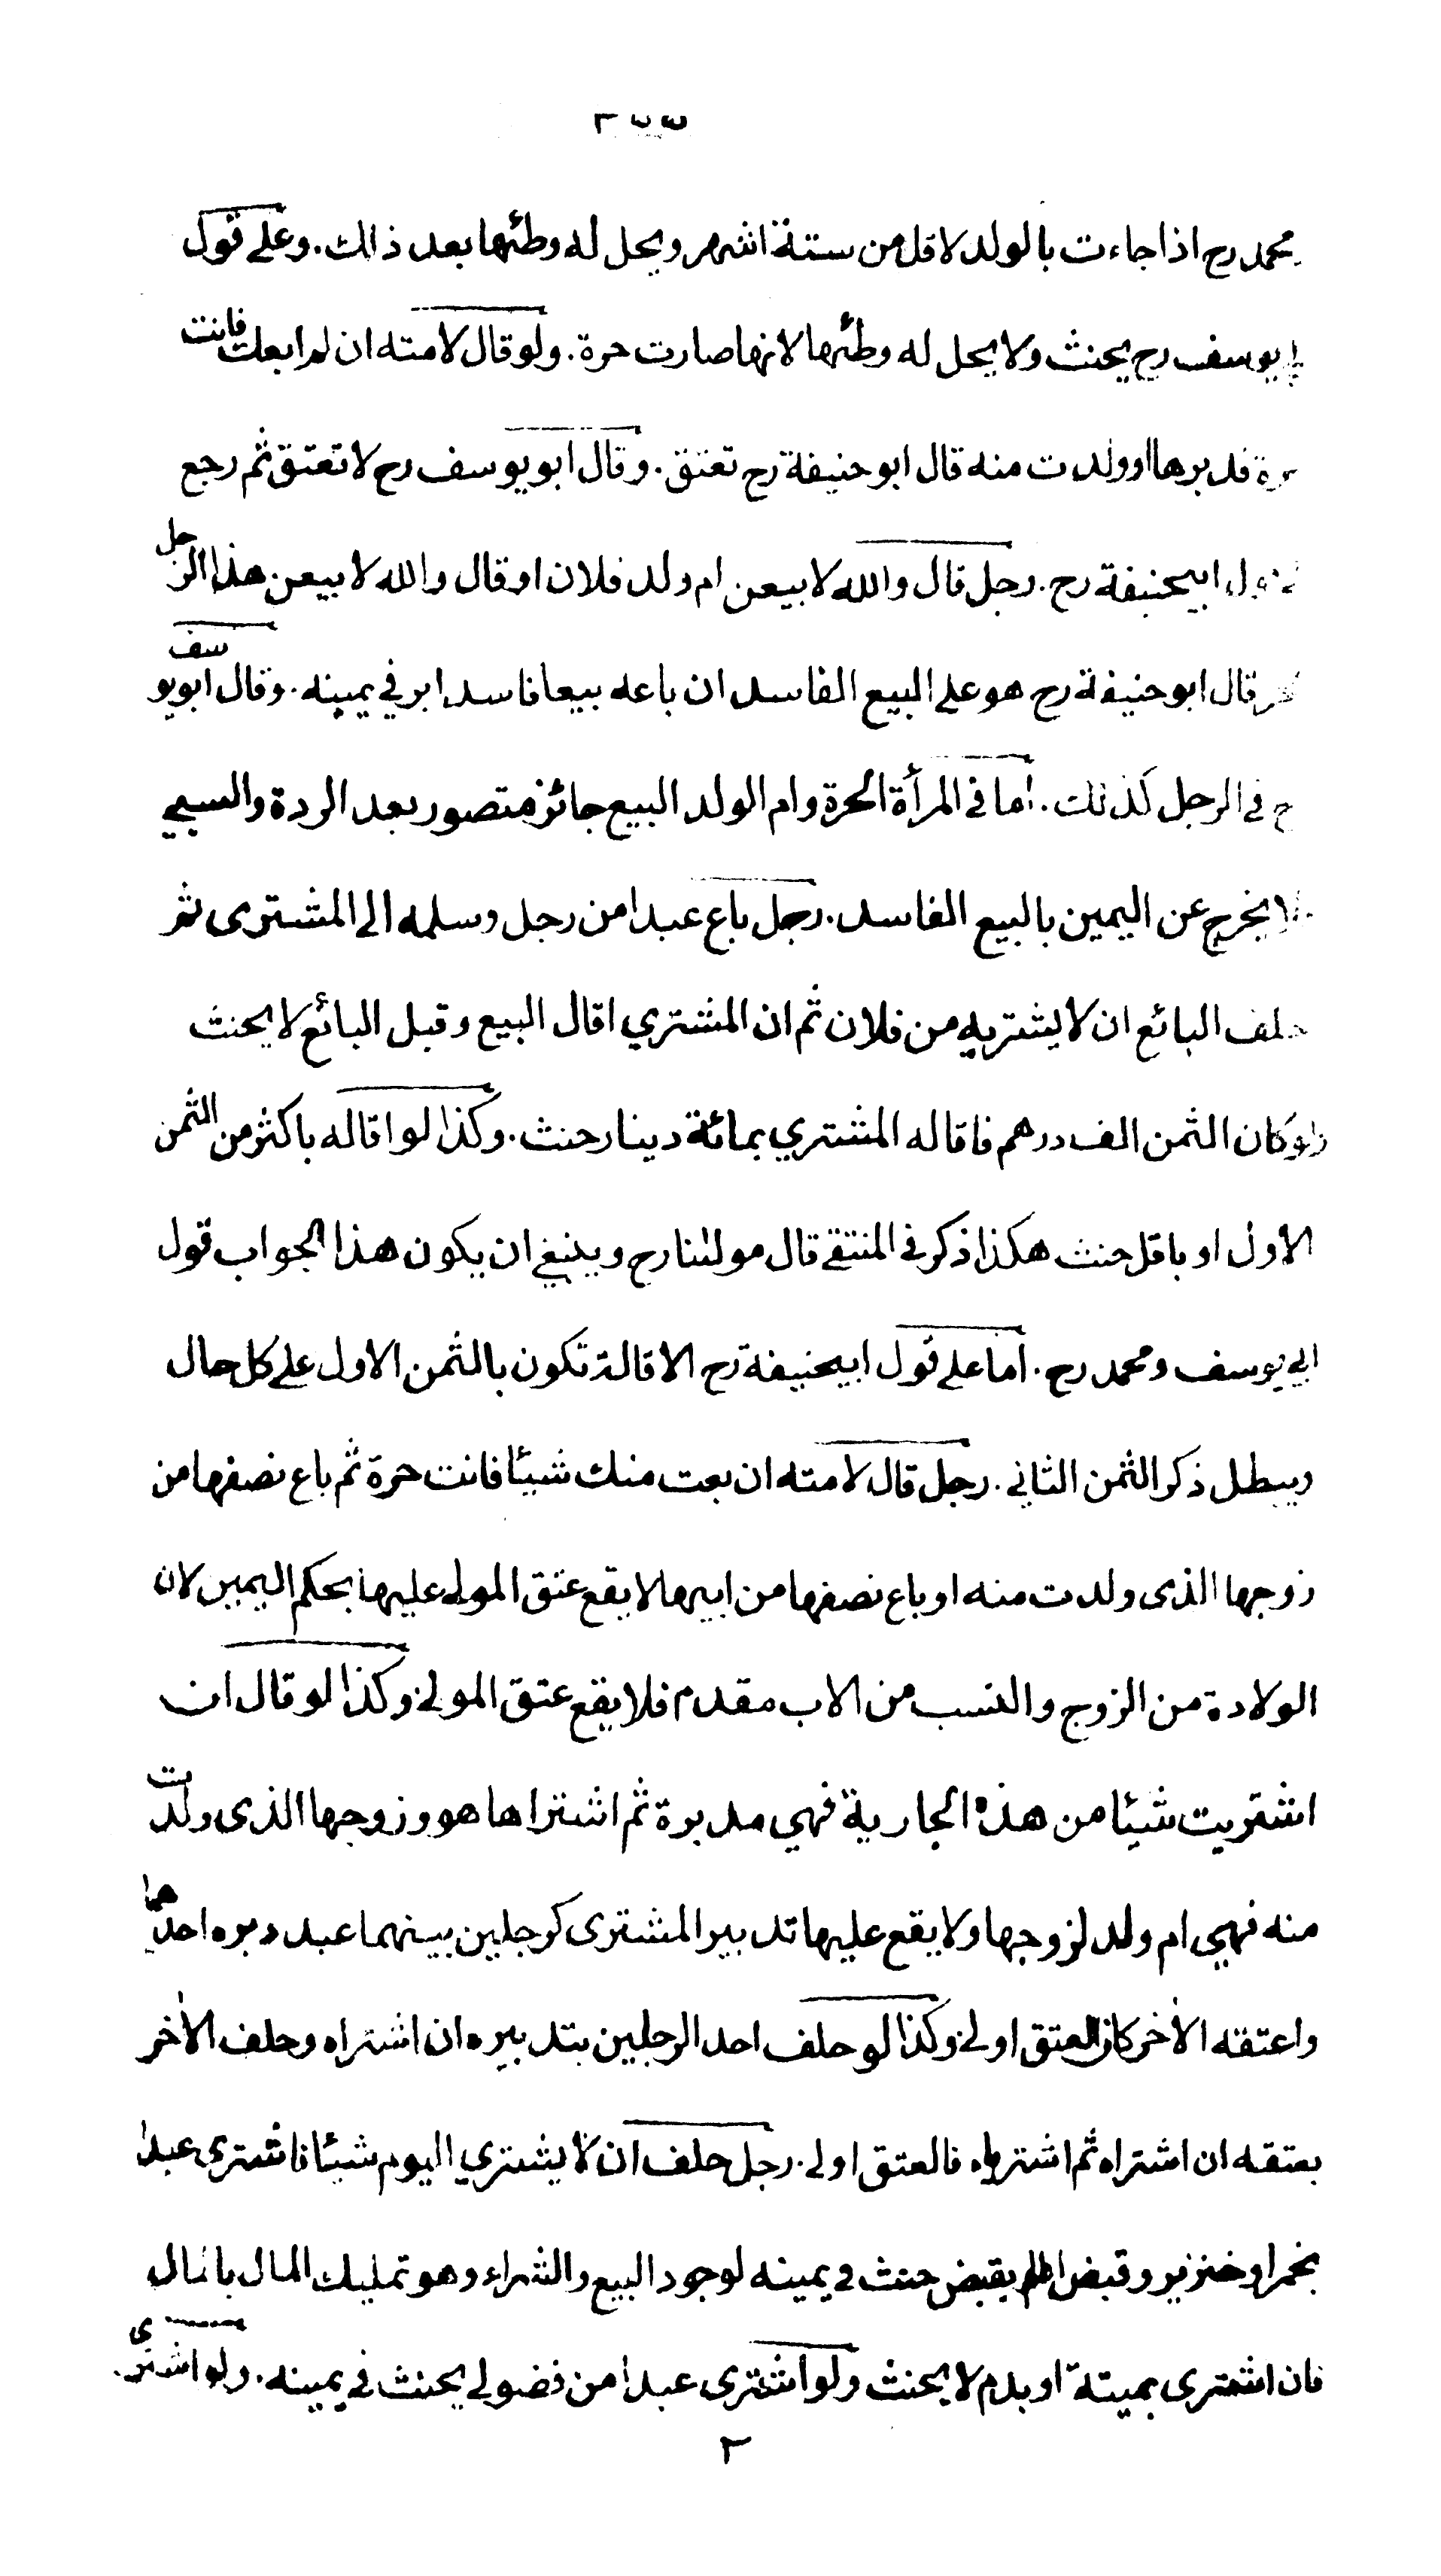 محمد رح اذا جاءت بالولد لاقل من ستة اشهر ويحل له وطئها بعد ذالك. وعلى قول
ابي يوسف رح يحنث ولا يحل له وطئها لانها صارت حرة. ولو قال لامته ان لم ابعك فانت
حرة فدبرها او ولدت منه قال ابو حنيفة رح تعتق. وقال ابو يوسف رح لا تعتق ثم رجع
ابيحنيفة رح. رجل قال والله لابيعن ام ولد فلان او قال والله لابيعن هذا الرجل
قال ابو حنيفة رح هو على البيع الفاسد ان باعه بيعا فاسدا بر في يمينه. وقال ابو يوسف
رح في الرجل كذلك. اما في المرأة الحرة وام الولد البيع جائز متصور بعد الردة والسبي
فلا يخرج عن اليمين بالبيع الفاسد. رجل باع عبدا من رجل وسلمه الى المشترى ثم
حلف البائع ان لا يشتريه من فلان ثم ان المشتري اقال البيع وقبل البائع لا يحنث
ولو كان الثمن الف درهم فاقاله المشتري بمائة دينار حنث. وكذا لو اقاله باكثر من الثمن
الاول او باقل حنث هكذا ذكر في المنتقى قال مولٰنا رح وينبغي ان يكون هذا الجواب قول
ابي يوسف ومحمد رح. اما على قول ابيحنيفة رح الاقالة تكون بالثمن الاول على كل حال
ويبطل ذكر الثمن الثاني. رجل قال لامته ان بعت منك شيئا فانت حرة ثم باع نصفها من
زوجها الذى ولدت منه او باع نصفها من ابيها لا يقع عتق المولى عليها بحكم اليمين لان
الولادة من الزوج والنسب من الاب مقدم فلا يقع عتق المولى وكذا لو قال ان
اشتريت شيئا من هذه الجارية فهي مدبرة ثم اشتراها هو وزوجها الذى ولدت
منه فهي ام ولد لزوجها ولا يقع عليها تدبير المشترى كرجلين بينهما عبد دبره احدهما
واعتقه الاٰخر كان العتق اولى وكذا لو حلف احد الرجلين بتدبيره ان اشتراه وحلف الاٰخر
بعتقه ان اشتراه ثم اشترياه فالعتق اولى. رجل حلف ان لا يشتري اليوم شيئا فاشترى عبدا
بخمر او خنزير وقبض او لم يقبض حنث في يمينه لوجود البيع والشراء وهو تمليك المال بالمال
فان اشترى بميتة او بدم لا يحنث ولو اشترى عبدا من فضولي يحنث في يمينه. ولو اشترى
٢